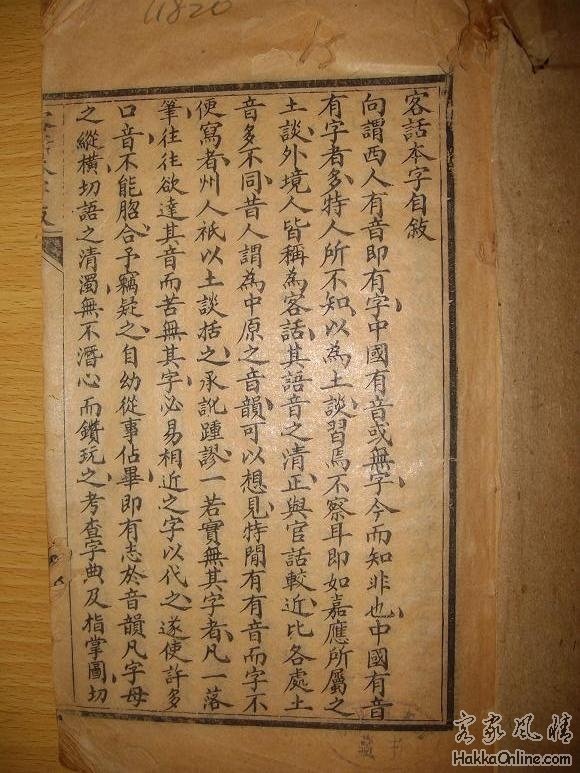 11820
客話本字自敘
向謂西人有音即有字中國有音或無字今而知非也中國有音
有字者多特人所不知以為土談習焉不察耳即如嘉應所屬之
土談外境人皆稱為客話其語音之清正與官話較近比各處土
音多不同昔人謂為中原之音韻可以想見特閒有有音而字不
便寫者州人祇以土談括之承訛踵謬一若實無其字者凡一落
筆往往欲達其音而苦無其字必易相近之字以代之遂使許多
口音不能脗合予竊疑之自幼從事佔畢即有志於音韻凡字母
之縱橫切語之清濁無不潛心而鑽玩之考查字典及指掌圖切
客家風情
HakkaOnline.com